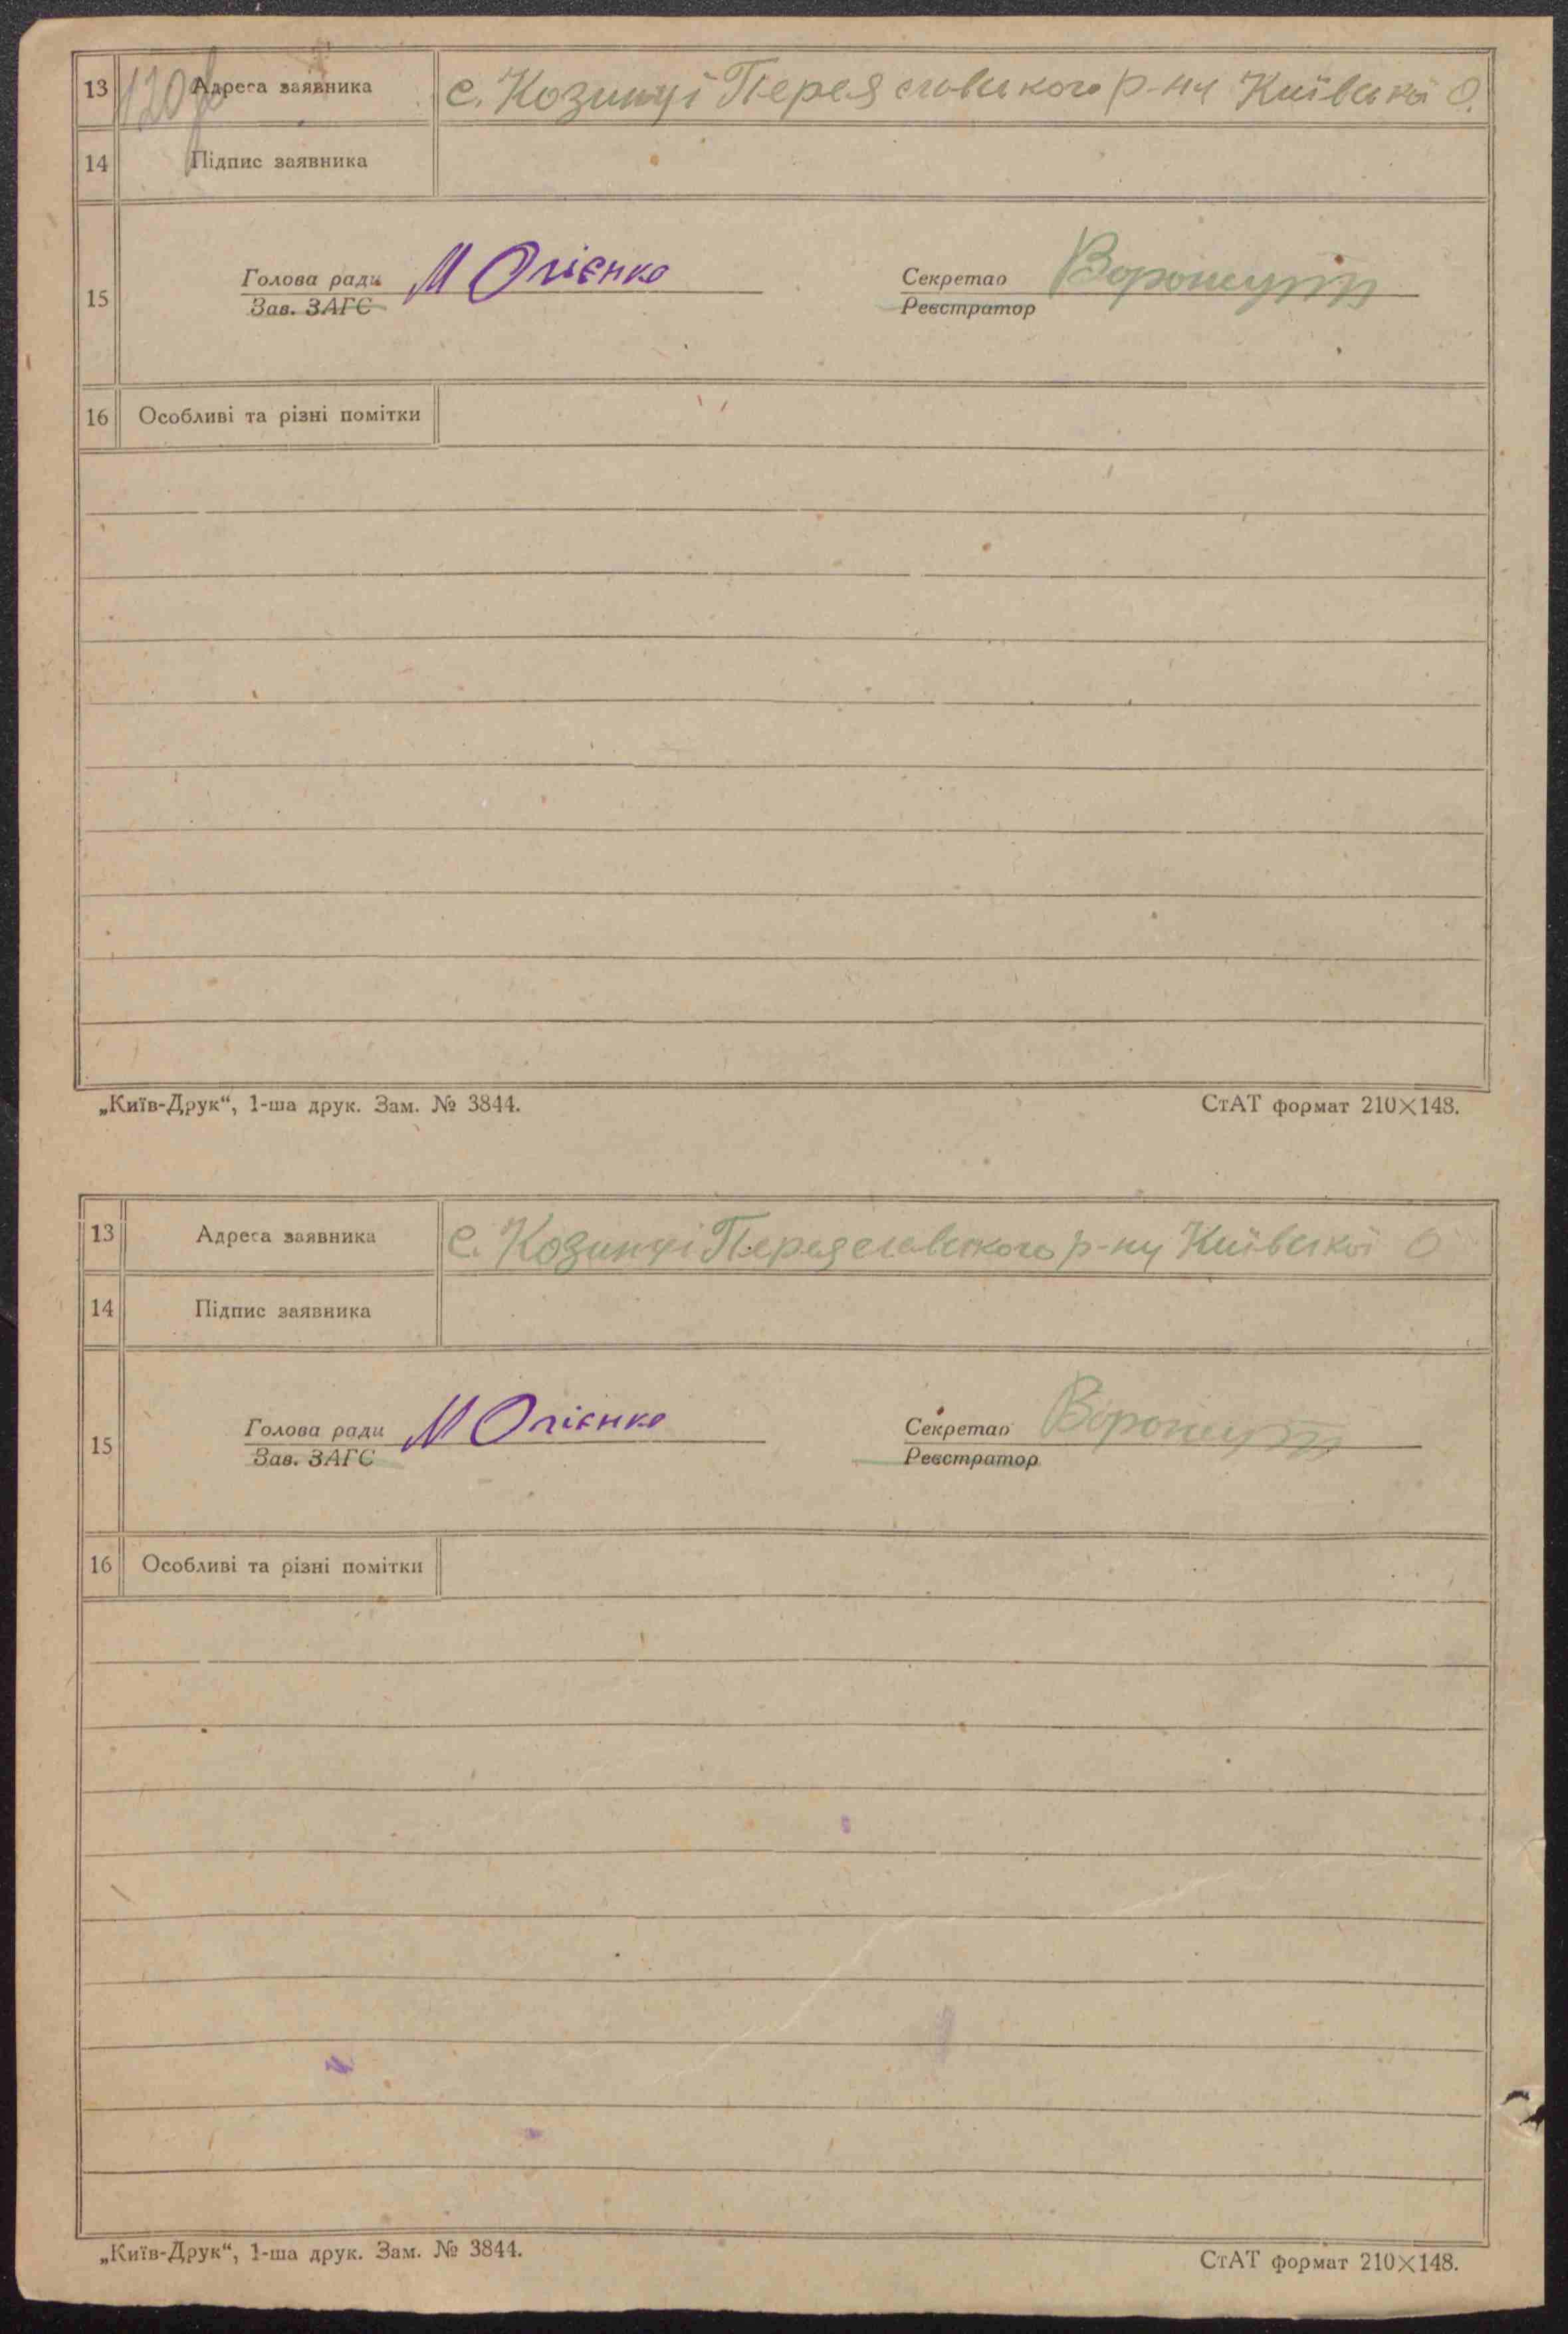 13 Адреса заявника с. Козинці Переяславського р-ну Київської О.
120
14 Підпис заявника
15 Голова ради М Олієнко Секретар
Зав. ЗАГС Реєстратор
16 Особливі та різні помітки
„Київ-Друк“, 1-ша друк. Зам. № 3844. СтАТ формат 210×148.
13 Адреса заявника с. Козинці Переяславського р-ну Київської О
14 Підпис заявника
15 Голова ради М Олієнко Секретар
Зав. ЗАГС Реєстратор
16 Особливі та різні помітки
„Київ-Друк“, 1-ша друк. Зам. № 3844. СтАТ формат 210×148.